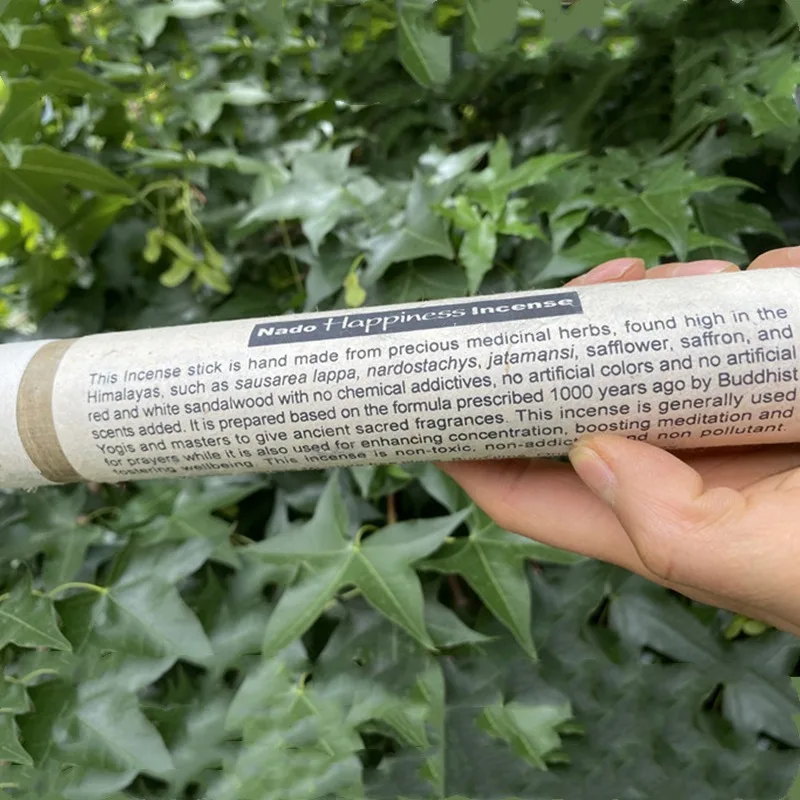 Nado Happiness Incense
This Incense stick is hand made from precious medicinal herbs, found high in the
Himalayas, such as sausarea lappa, nardostachys, jatamansi, safflower, saffron, and
red and white sandalwood with no chemical addictives, no artificial colors and no artificial
scents added. It is prepared based on the formula prescribed 1000 years ago by Buddhist
Yogis and masters to give ancient sacred fragrances. This incense is generally used
for prayers while it is also used for enhancing concentration, boosting meditation and
fostering wellbeing. This Incense is non-toxic, non-addic nd non pollutant.